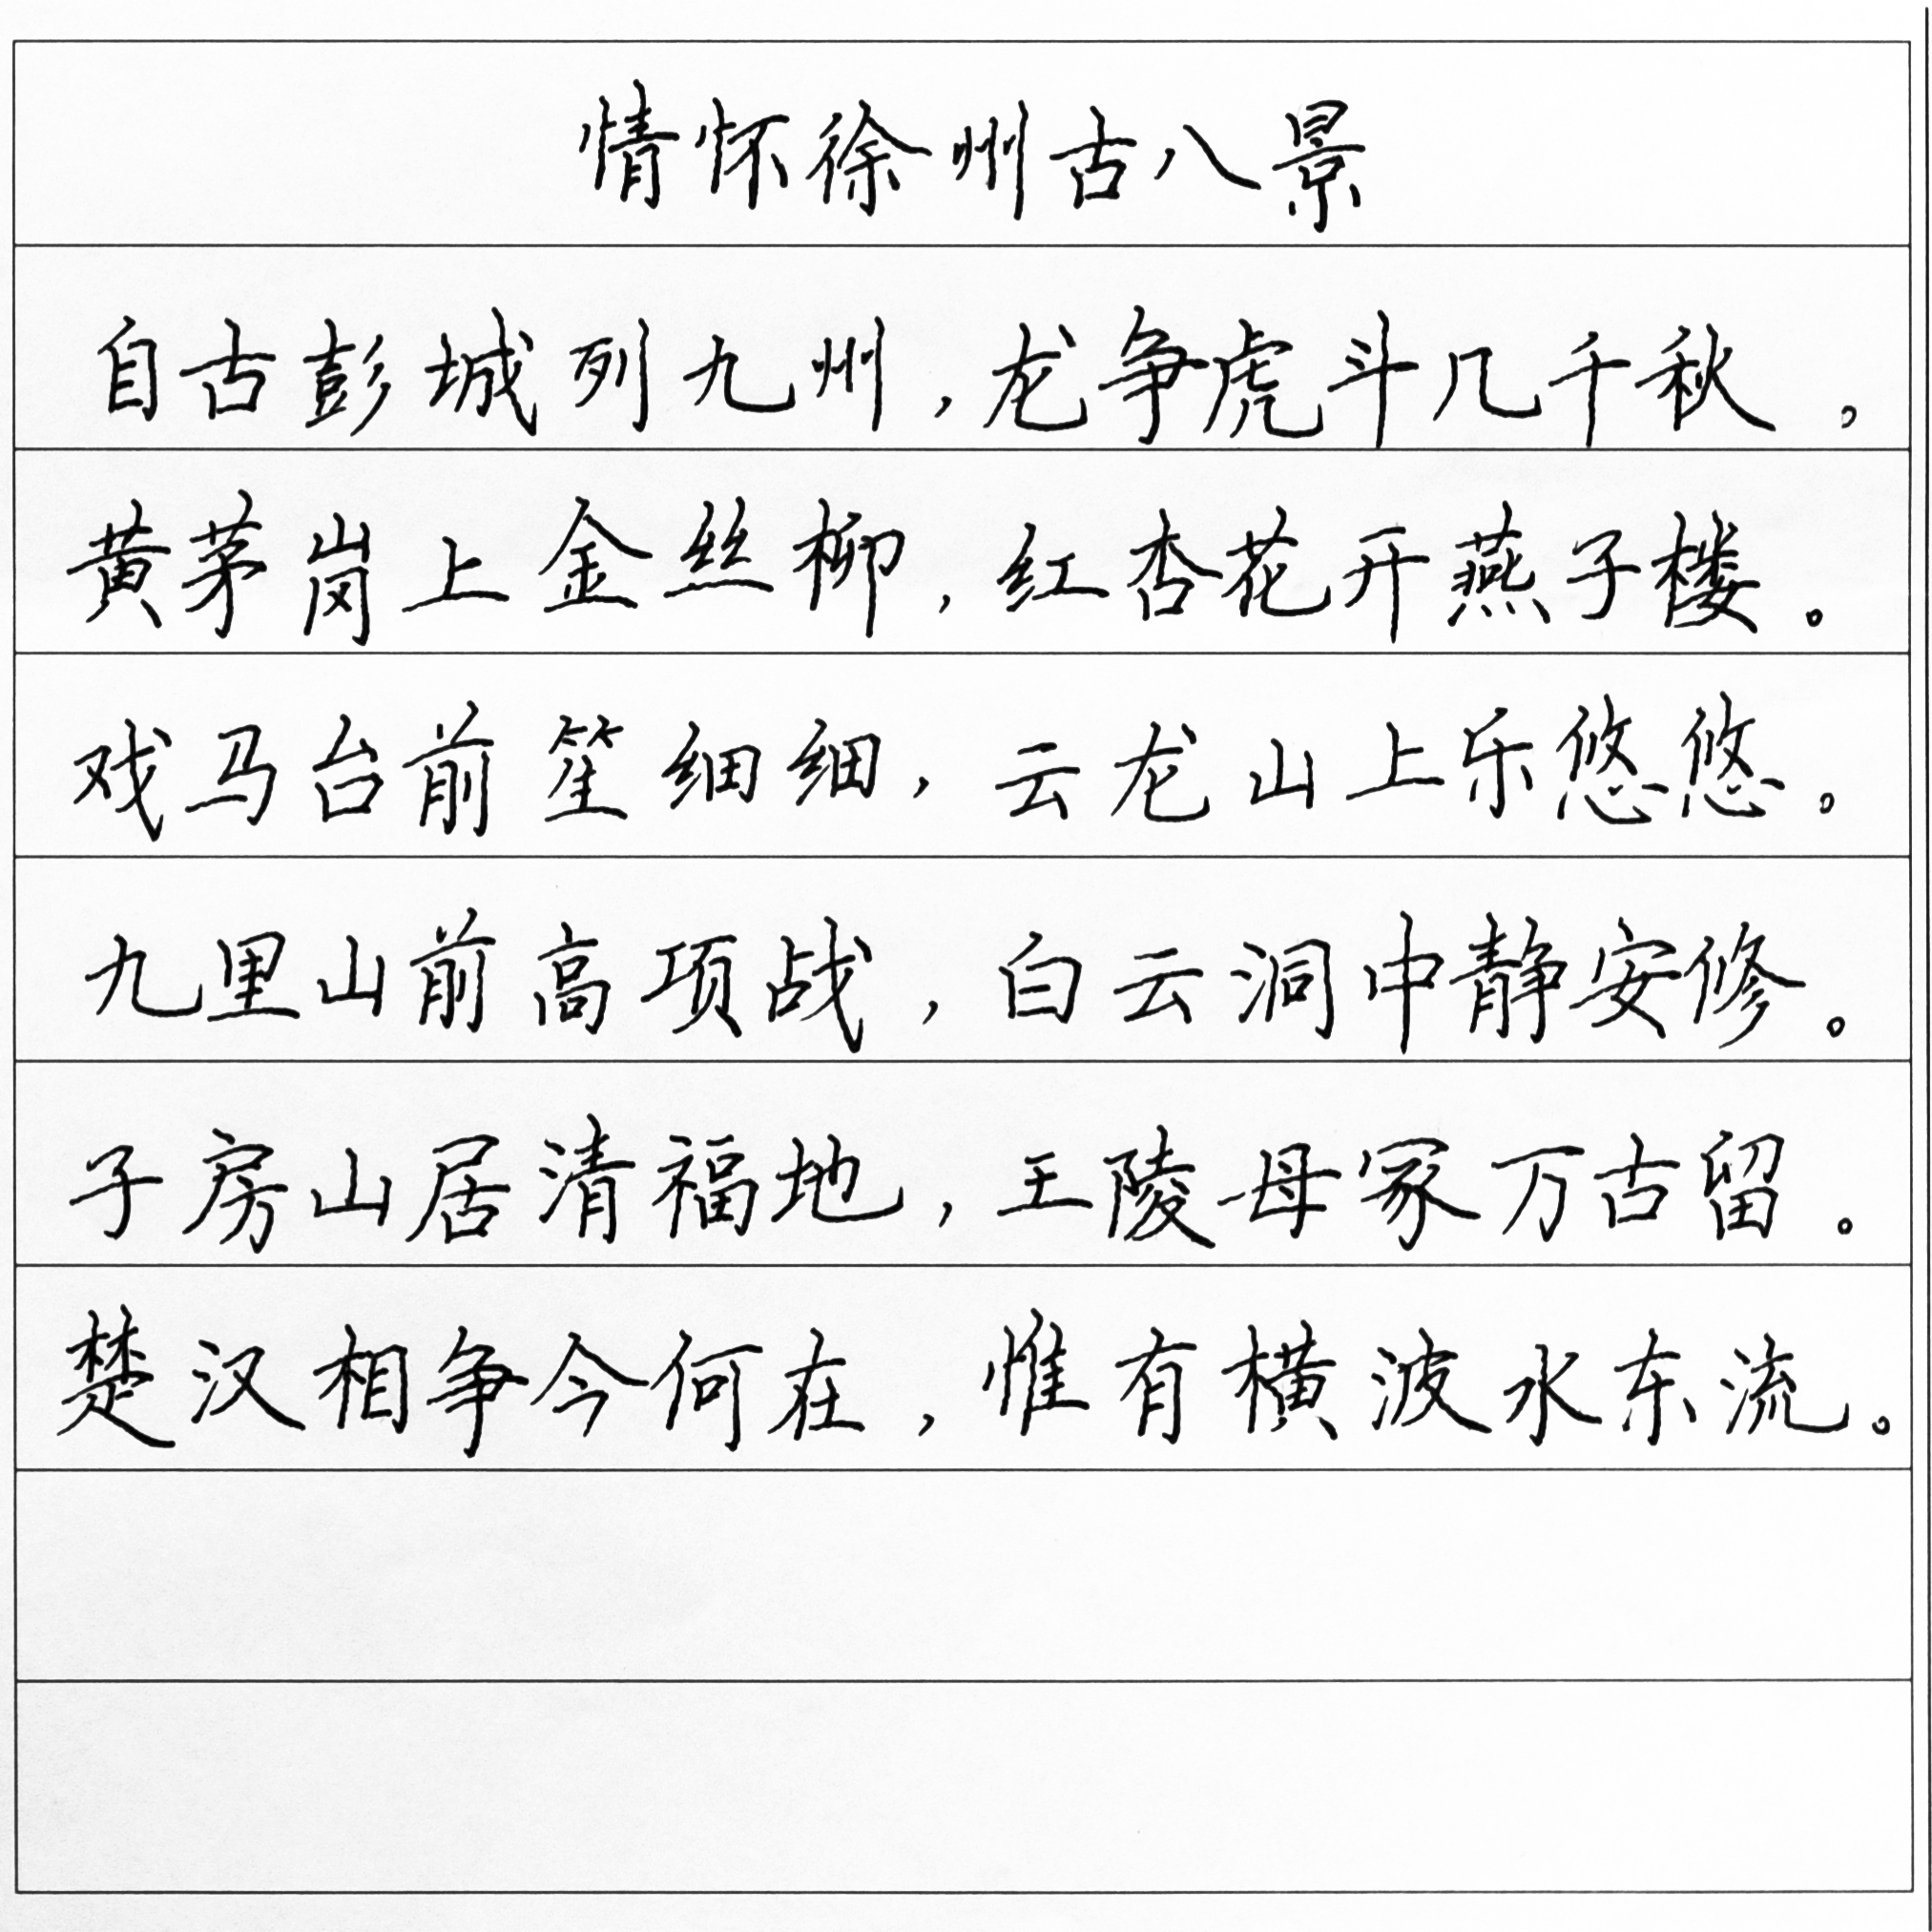 情怀徐州古八景
自古彭城列九州,龙争虎斗几千秋,
黄茅岗上金丝柳,红杏花开燕子楼。
戏马台前笙细细,云龙山上乐悠悠。
九里山前高项战,白云洞中静安修。
子房山居清福地,王陵母冢万古留。
楚汉相争今何在,惟有横波水东流。